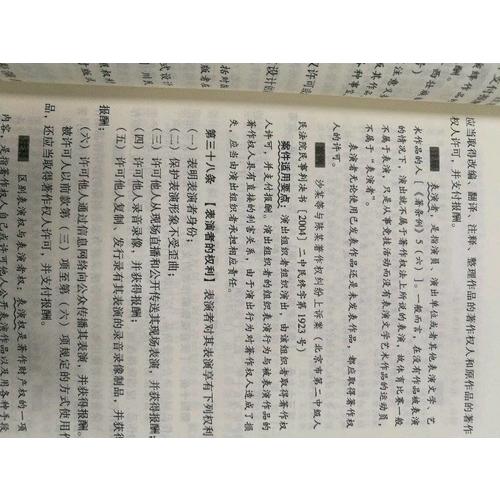 应当取得改编、翻译、注释、整理作品的著作权人和原作品的著作
权人许可，并支付报酬。
表演者，是指演员、演出单位或者其他表演文学、艺
术作品的人［《著条例》5（六）］。一般而言，在没有作品被表演
的情况下，演出就不属于著作权法上所说的表演，故体育比赛一般
不属于表演，只是从事竞技活动而没有表演文学艺术作品的运动员，
不属于“表演者”。
表演者无论使用已发表作品还是未发表作品，都应取得著作权
人的许可。
沙某等与陈某著作权纠纷上诉案（北京市第二中级人
民法院民事判决书［2004］二中民终字第1923号）
案件适用要点：演出组织者组织演出，由该组织者取得著作权
人许可，并支付报酬。演出组织者的组织表演行为与被表演作品的
著作权人具有直接的利害关系，由于演出行为对著作权人造成了损
失，应当由演出组织者承担相应责任。
第三十八条 【表演者的权利】表演者对其表演享有下列权利：
（一）表明表演者身份；
（二）保护表演形象不受歪曲；
（三）许可他人从现场直播和公开传送其现场表演，并获得报酬；
（四）许可他人录音录像，并获得报酬；
（五）许可他人复制、发行录有其表演的录音录像制品，并获得
报酬；
（六）许可他人通过信息网络向公众传播其表演，并获得报酬。
被许可人以前款第（三）项至第（六）项规定的方式使用作
品，还应当取得著作权人许可，并支付报酬。
区别表演权与表演者权。表演权是著作财产权的一项
内容，是指著作权人自己或者许可他人公开表演作品以及用各种手段